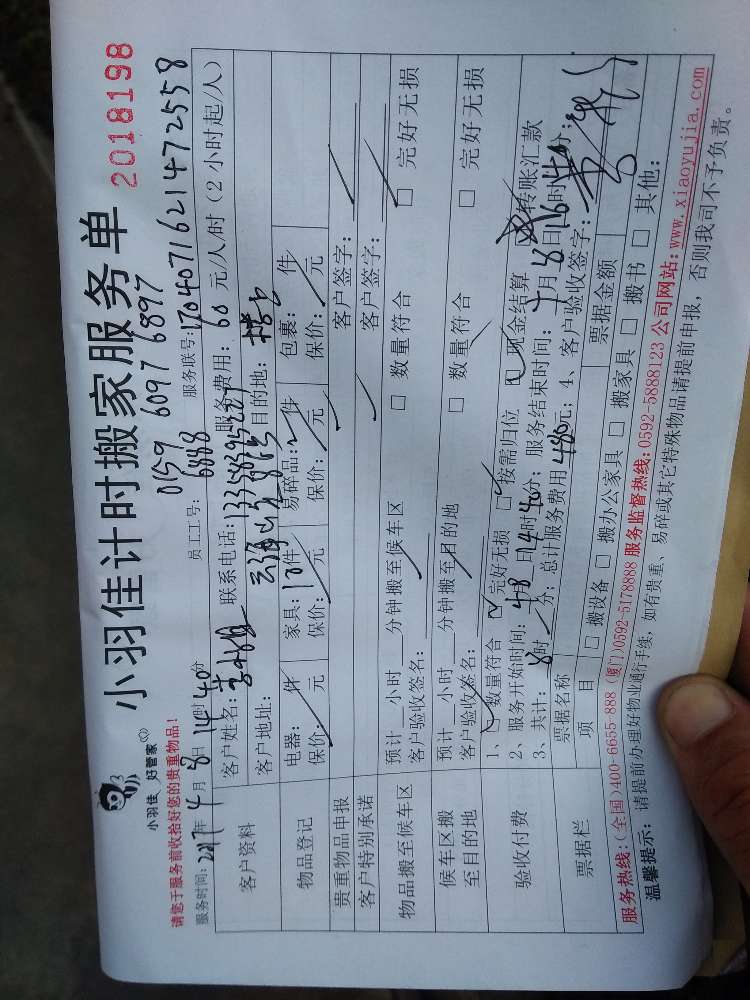 小羽佳计时搬家服务单 2018198
小羽佳 好管家
0159 6097 6897
请您于服务前收拾好您的贵重物品！ 员工工号：6888 服务联号：17040716214725 58
服务时间：2017年4月8日14时40分 服务费用：60元/人/时（2小时起/人）
客户资料
客户姓名： 联系电话：
客户地址： 目的地：楼上
物品登记
电器： 件 家具：10件 易碎品： 件 包裹： 件
保价： 元 保价： 元 保价： 元 保价： 元
贵重物品申报 客户签字：
客户特别承诺 客户签字：
物品搬至候车区
预计 小时 分钟搬至候车区 □ 数量符合 □ 完好无损
客户验收签名：
候车区搬至目的地
预计 小时 分钟搬至目的地 □ 数量符合 □ 完好无损
客户验收签名：
验收付费
1、□ 数量符合 □ 完好无损 □ 按需归位 □ 现金结算 □ 转账汇款
2、服务开始时间：4月8日14时40分；服务结束时间： 月8日16时40分；
3、共计：8时 分；总计服务费用480元；4、客户验收签字：
票据栏
票据名称 票据金额
项目 □ 搬设备 □ 搬办公家具 □ 搬家具 □ 搬书 □ 其他：
服务热线：(全国)400-6655-888 (厦门)0592-5178888 服务监督热线：0592-5888123 公司网站：www.xiaoyujia.com
温馨提示： 请提前办理好物业通行手续，如有贵重、易碎或其它特殊物品请提前申报，否则我司不予负责。